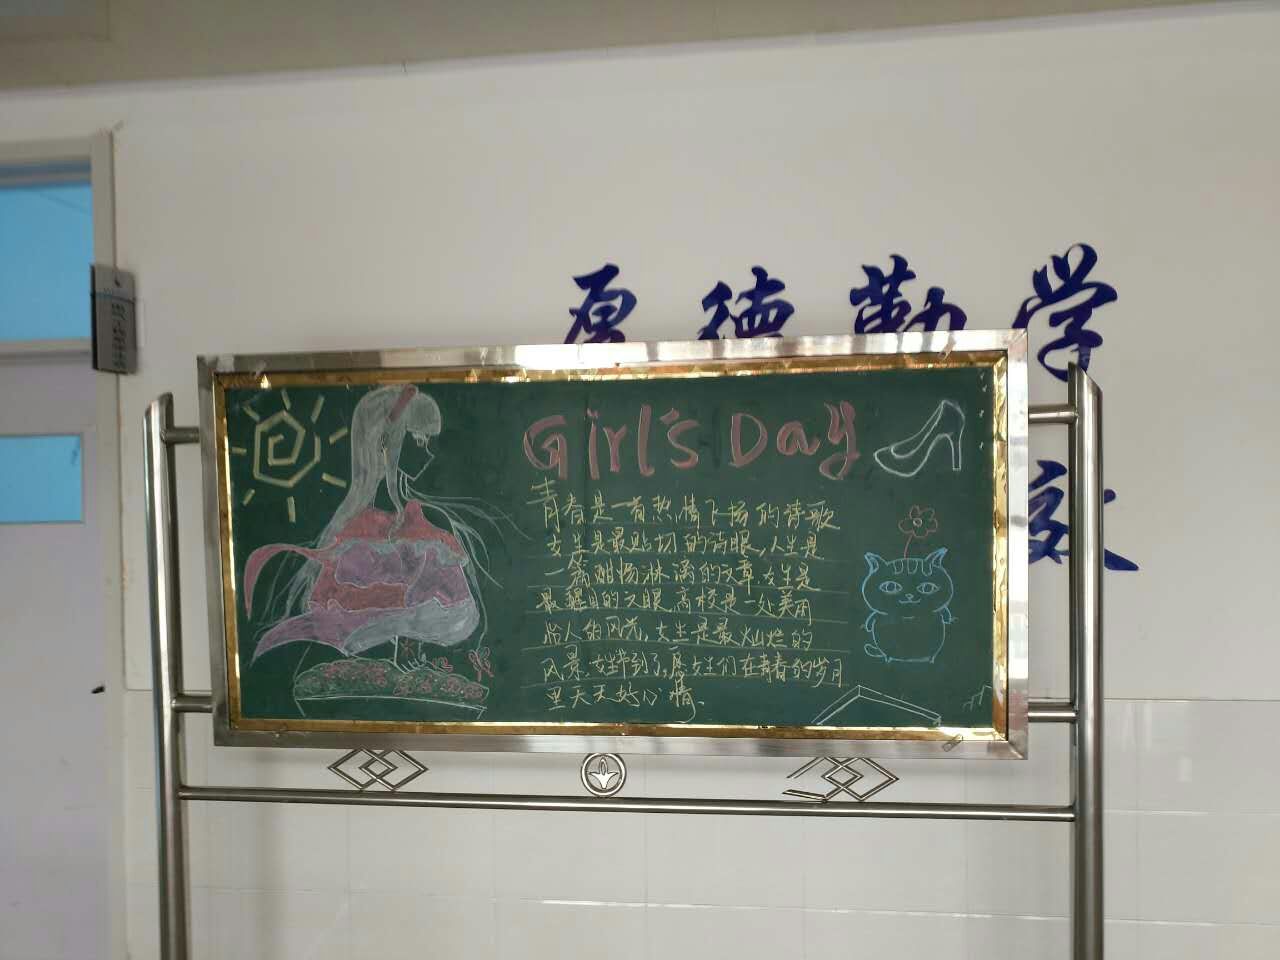 厚德勤学
Girl's Day
青春是一首热情飞扬的诗歌
女生是最贴切的诗眼,人生是
一篇酣畅淋漓的文章,女生是
最醒目的文眼,高校是一处美丽
怡人的风光,女生是最灿烂的
风景,女生节到了,愿女生们在青春的岁月
里天天好心情、